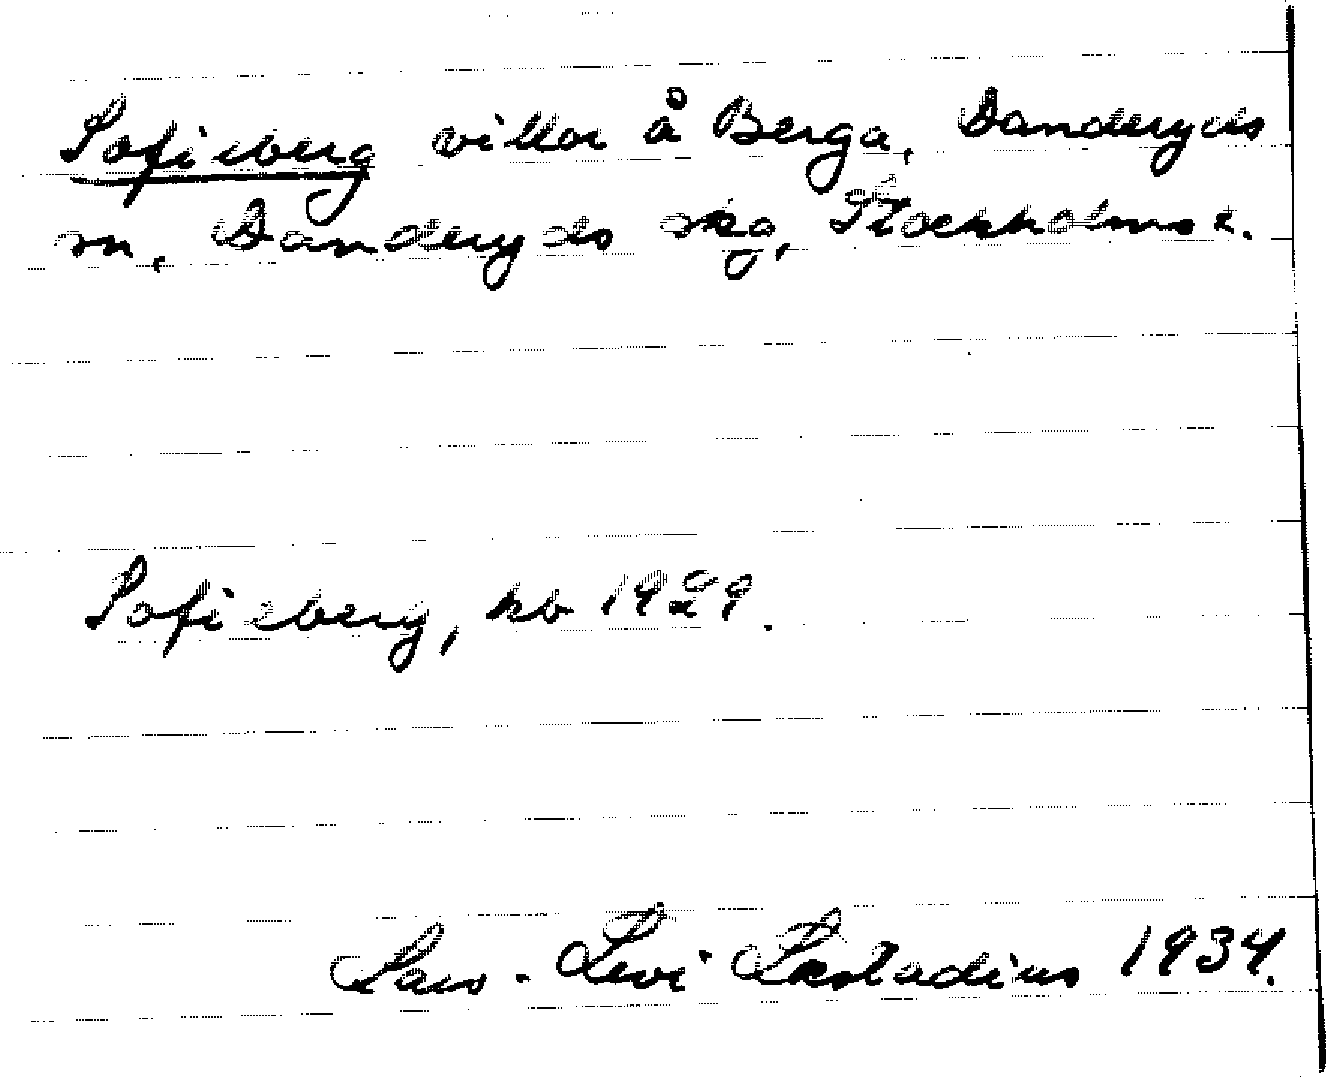 Sofieberg villa å Berga, Danderyds
sn, Danderyds skg, Stockholms l.
Sofieberg, kb 1929.
Lars-Levi Læstadius 1934.